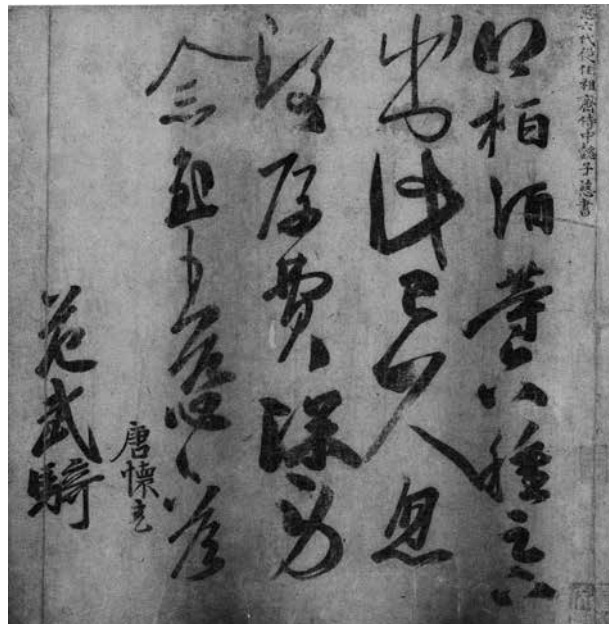 臣六代從伯祖齊侍中懿子慈書
柏酒等八種足下
出此已久忽
致厚費深勞
念王慈答
唐懷充
范武騎